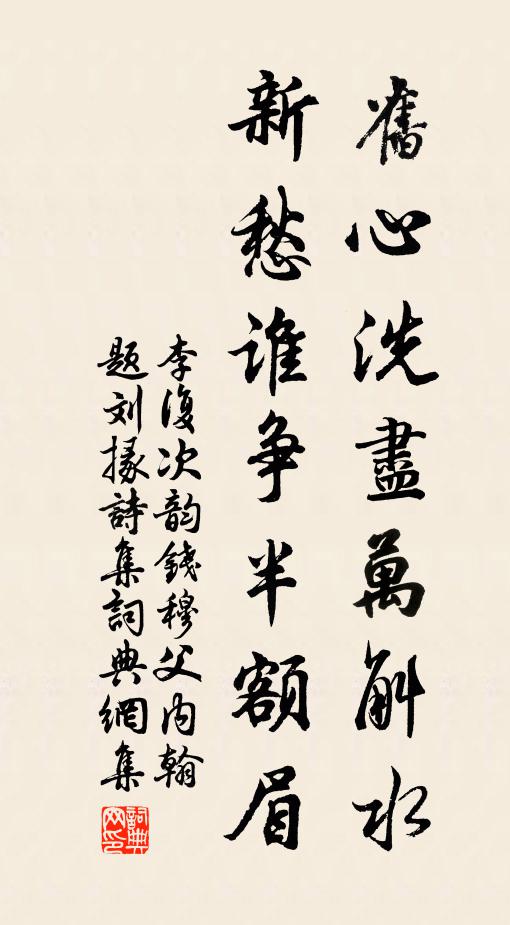 舊心洗盡萬斛水
新愁誰争半額眉
李復次韵錢穆父内翰
題刘掾詩集詞典網集
詞典
网印